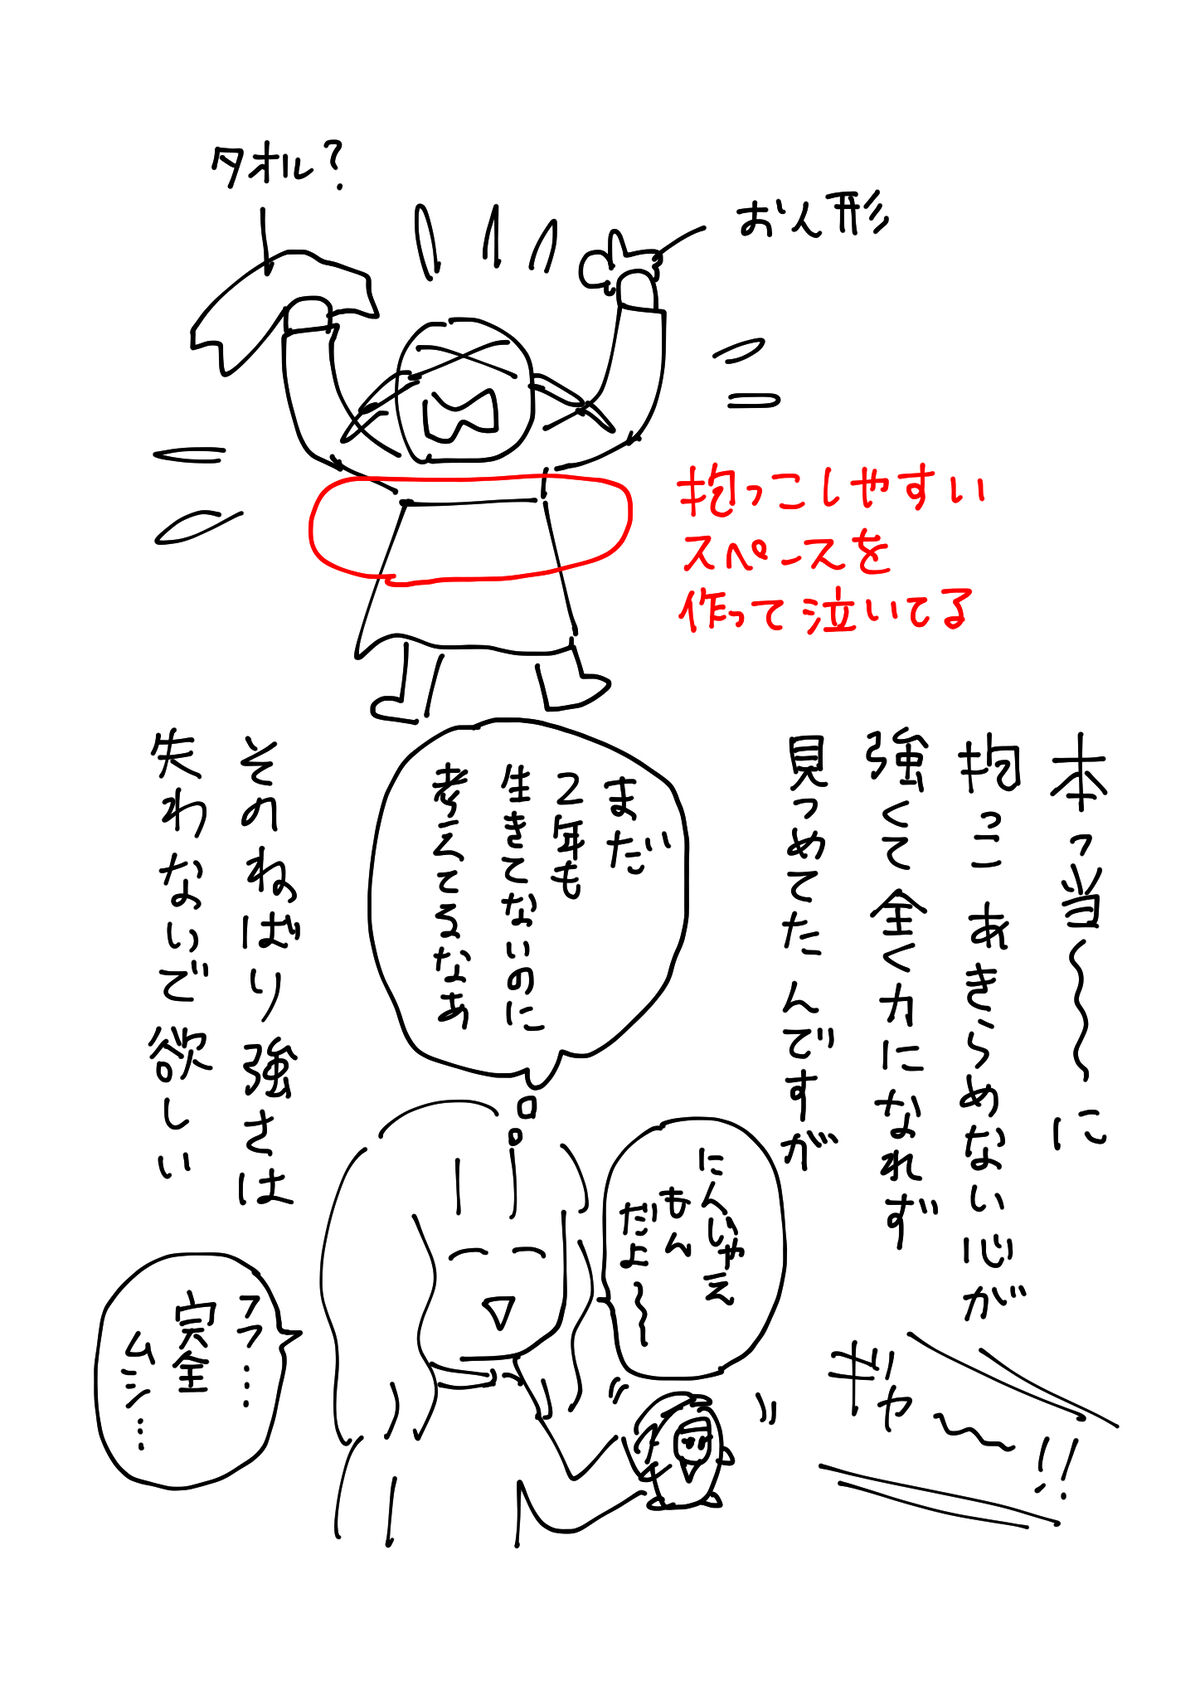 タオル?
お人形
抱っこしやすい
スペースを
作って泣いてる
本っ当〜〜に
抱っこあきらめない心が
強くて全く力になれず
見つめてたんですが
まだ
2年も
生きてないのに
考えてるなあ
そのねばり強さは
失わないで欲しい
にんじゃえ
もん
だよ〜〜
ギャ〜〜!!
フフ…
完全
ムシ…